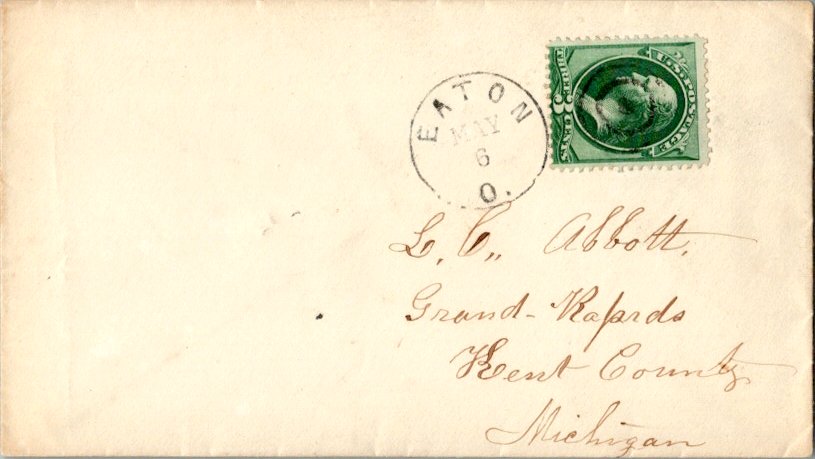 EATON
MAY
6
O.
U.S. POSTAGE
THREE 3 CENTS
L. C., Abbott.
Grand-Rapids
Kent County
Michigan